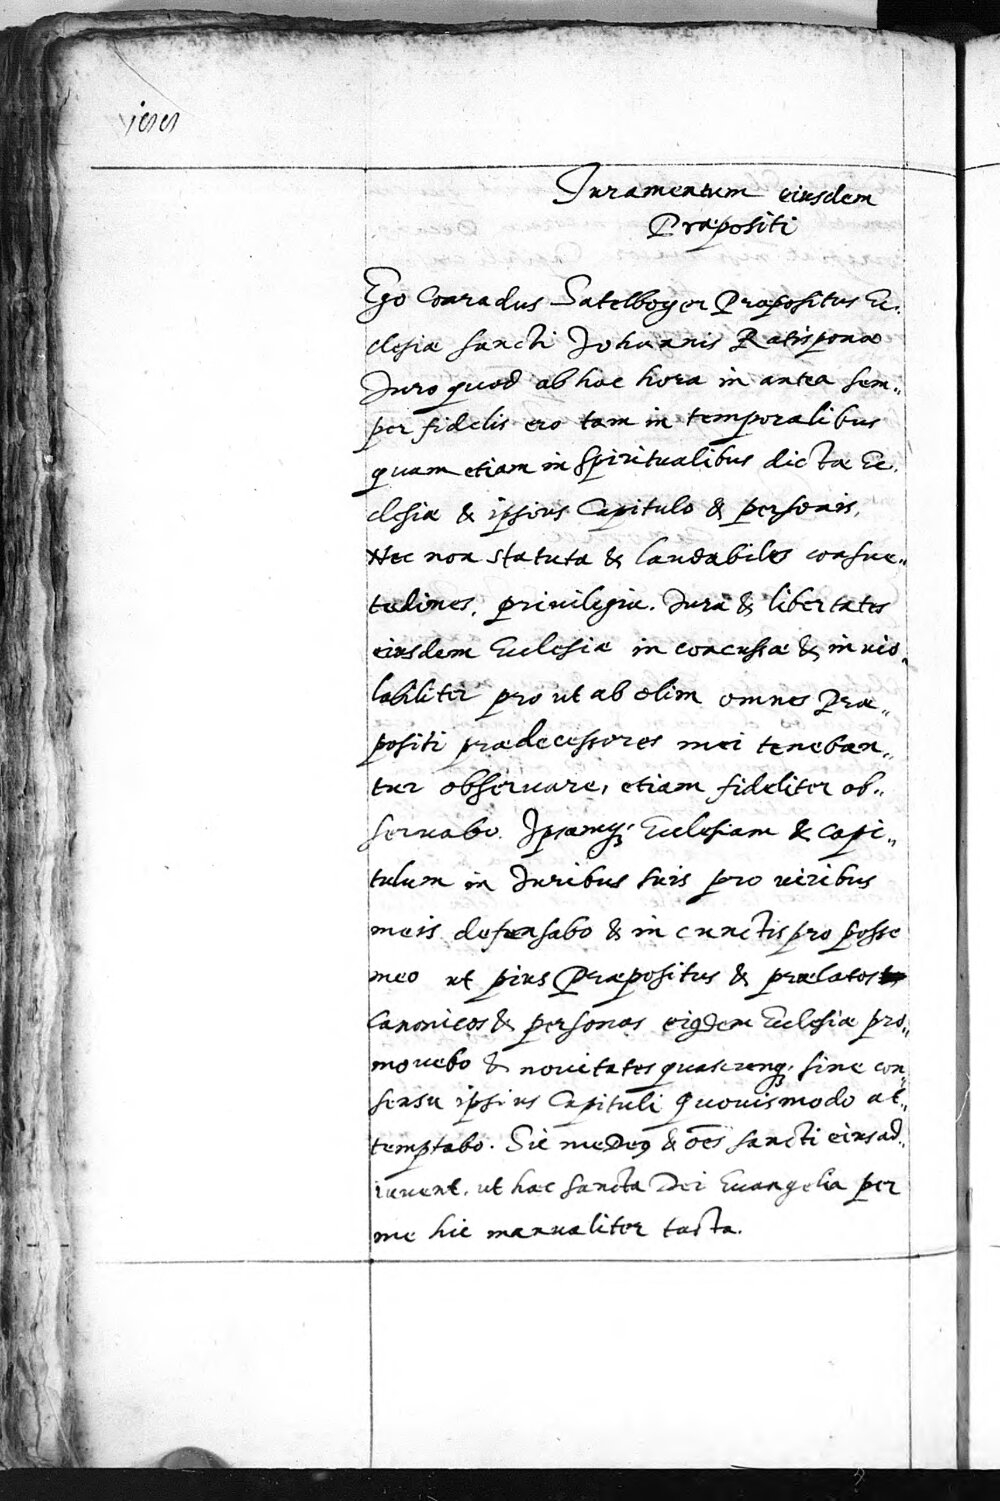 Iuramentum eiusdem
Præpositi
Ego Conradus Satelboger Præpositus Ec,
clesiæ Sancti Johannis Ratisponæ
Juro quod ab hac hora in antea sem„
per fidelis ero tam in temporalibus
quam etiam in Spiritualibus dicta Ec,
clesiæ & ipsius Capitulo & personis,
Nec non statuta & laudabiles consue„
tudines, priuilegia. Jura & libertates
eiusdem Ecclesiæ in concussæ & in uio„
labiliter pro ut ab olim omnes Præ„
positi prædecessores mei teneban„
tur obseruare, etiam fideliter ob„
seruabo. Ipsamq; Ecclesiam & capi„
tulum in Juribus suis pro uiribus
meis defensabo & in cunctis pro posse
meo ut pius Præpositus & prælatos
Canonicos & personas eiusdem Ecclesiæ pro„
mouebo & nouitates quascunq; sine con„
sensu ipsius Capituli quouismodo at„
temptabo. Sic me Deus & oēs sancti eius ad„
iuuent, ut hæc sancta Dei Euangelia per
me hic manualiter tacta.